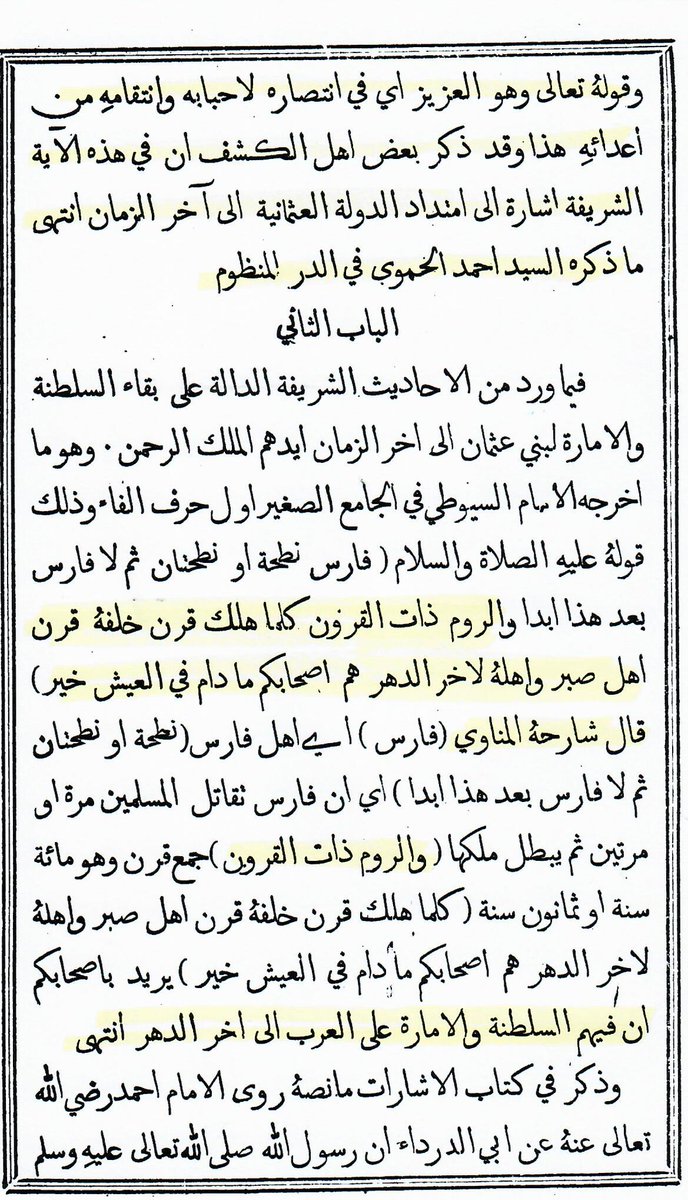 وقولهُ تعالى وهو العزيز اي في انتصاره لاحبابه وانتقامهِ من
أعدائهِ هذا وقد ذكر بعض اهل الكشف ان في هذه الآية
الشريفة اشارة الى امتداد الدولة العثمانية الى آخر الزمان انتهى
ما ذكره السيد احمد الحموي في الدر المنظوم
الباب الثاني
فيما ورد من الاحاديث الشريفة الدالة على بقاء السلطنة
والامارة لبني عثمان الى اخر الزمان ايدهم الملك الرحمن ٠ وهو ما
اخرجه الامام السيوطي في الجامع الصغير اول حرف الفاء وذلك
قولهُ عليهِ الصلاة والسلام ( فارس نطحة او نطحتان ثم لا فارس
بعد هذا ابدا والروم ذات القرون كلما هلك قرن خلفهُ قرن
اهل صبر واهلهُ لاخر الدهر هم اصحابكم ما دام في العيش خير )
قال شارحهُ المناوي (فارس ) اي اهل فارس (نطحة او نطحتان
ثم لا فارس بعد هذا ابدا ) اي ان فارس تقاتل المسلمين مرة او
مرتين ثم يبطل ملكها ( والروم ذات القرون ) جمع قرن وهو مائة
سنة او ثمانون سنة ( كلما هلك قرن خلفهُ قرن اهل صبر واهلهُ
لاخر الدهر هم اصحابكم ما دام في العيش خير ) يريد باصحابكم
ان فيهم السلطنة والامارة على العرب الى اخر الدهر انتهى
وذكر في كتاب الاشارات ما نصهُ روى الامام احمد رضي الله
تعالى عنهُ عن ابي الدرداء ان رسول الله صلى الله تعالى عليهِ وسلم